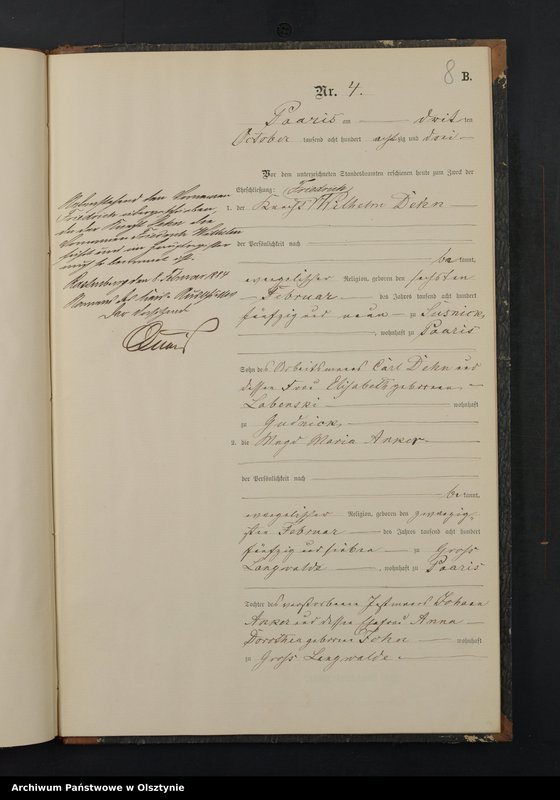 8 B.
Nr. 4.
Paaris am drit ten
October tausend acht hundert achtzig und drei
Vor dem unterzeichneten Standesbeamten erschienen heute zum Zweck der
Eheschließung: Friedrich
1. der Knecht Wilhelm Dehn
der Persönlichkeit nach
be kannt,
evangelischer Religion, geboren den sechsten
Februar des Jahres tausend acht hundert
fünfzig und neun zu
, wohnhaft zu Paaris
Sohn des Arbeitsmanns Carl Dehn und
dessen Frau Elisabeth geborenen
Labenski wohnhaft
zu Gudnick,
2. die Magd Maria Anker
der Persönlichkeit nach
be kannt,
evangelischer Religion, geboren den zwanzig-
sten Februar des Jahres tausend acht hundert
fünfzig und sieben zu Gross
Langwalde , wohnhaft zu Paaris
Tochter des verstorbenen Instmanns Johann
Anker und dessen Ehefrau Anna
Dorothea geborne wohnhaft
zu Gross Langwalde
den Vornamen
Friedrich
da der Knecht Dehn die
Vornamen Friedrich Wilhelm
führt und im
ist.
Rastenburg den 8. Februar 1884
Archiwum Państwowe w Olsztynie